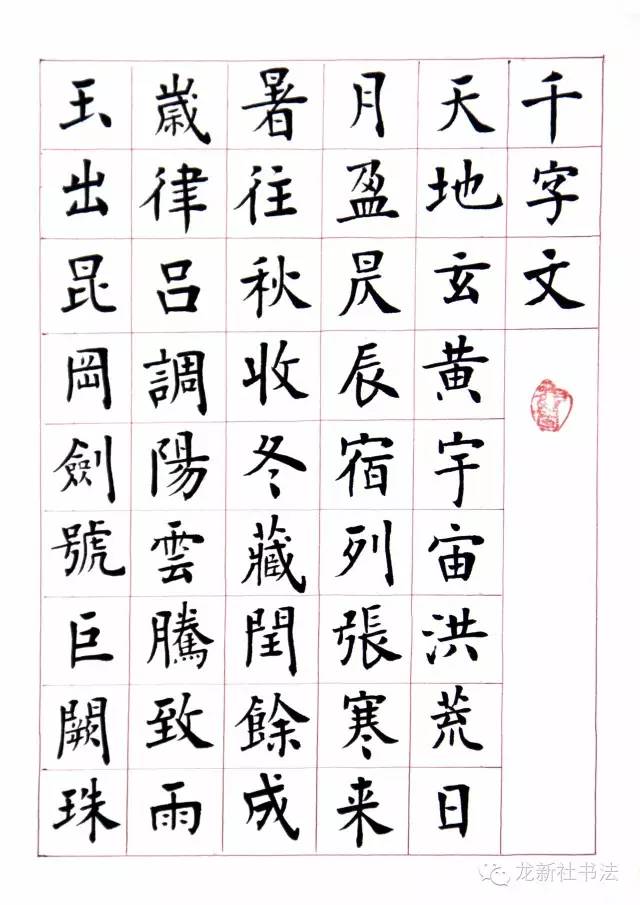 千字文
天地玄黄宇宙洪荒日
月盈昃辰宿列張寒来
暑往秋收冬藏閏餘成
歲律吕調陽雲騰致雨
玉出昆岡劍號巨闕珠
龙新社书法